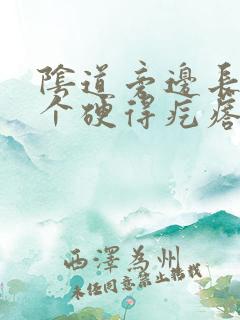 陰道旁邊長
个硬得疙瘩
西澤為州
未经同意禁止转载